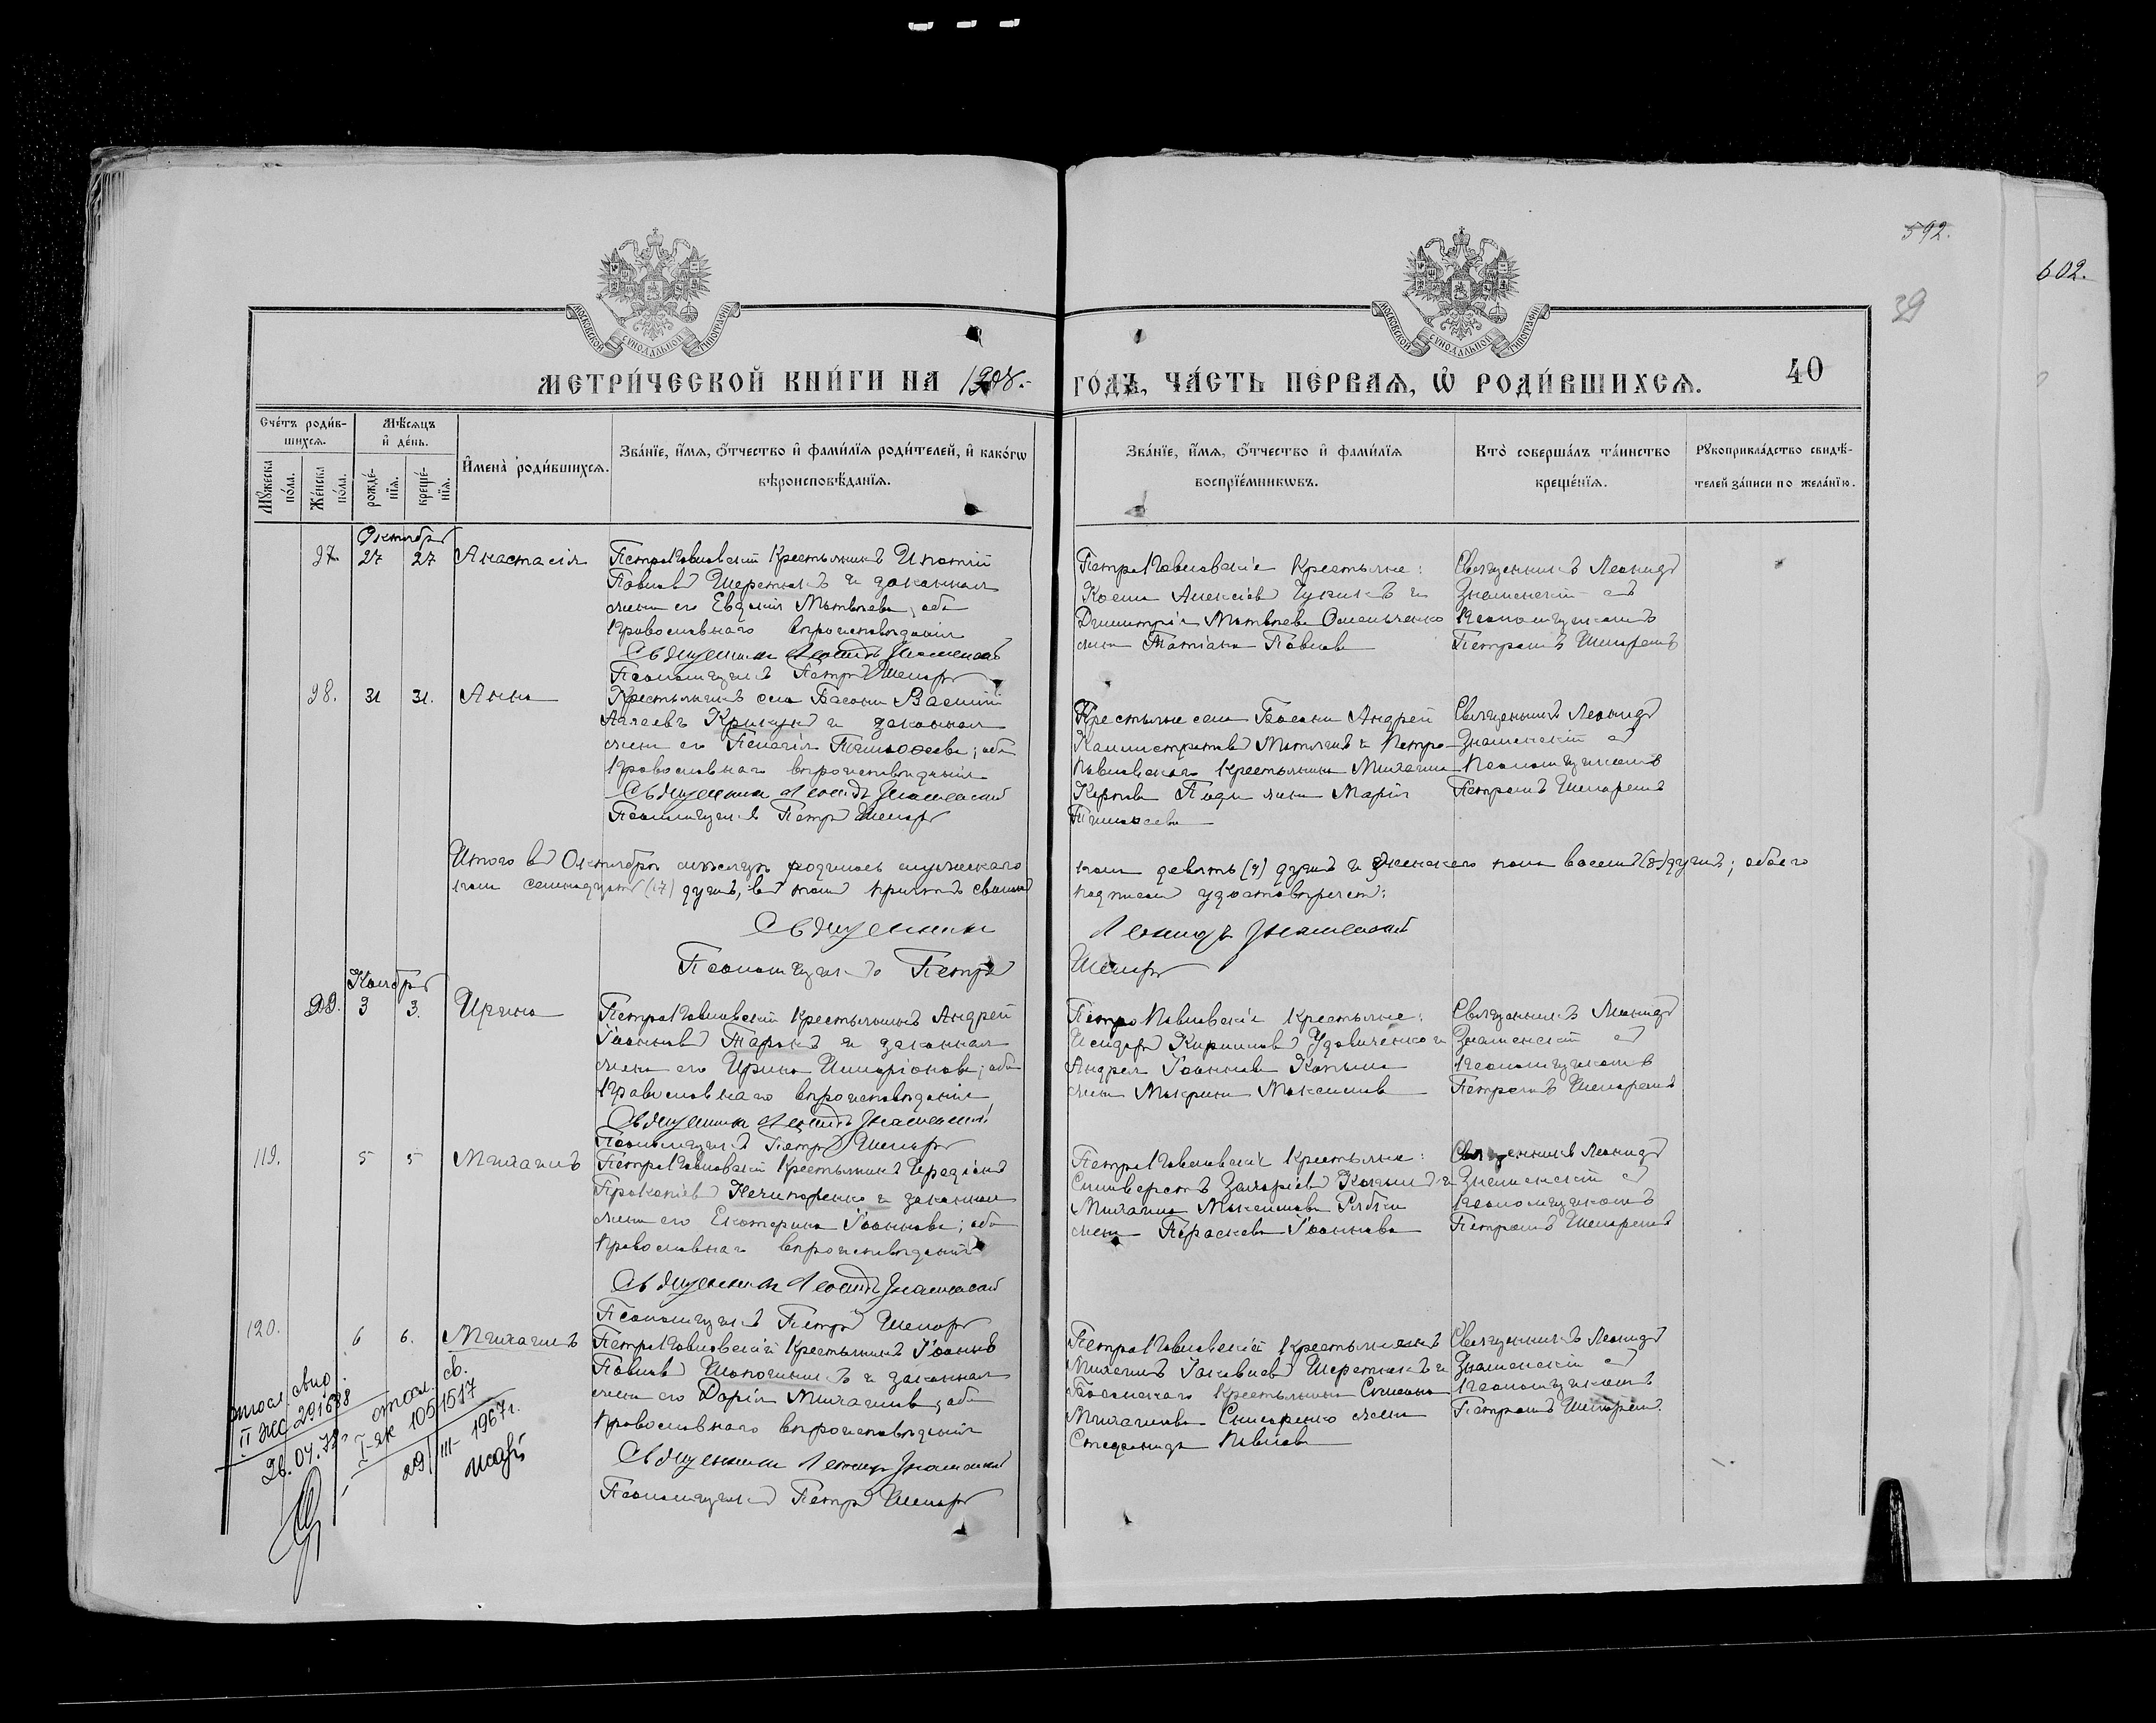 592.
602.
39
МОСКОВСКОЙ СУНОДАЛЬНОЙ ТИПОГРАФІИ
МОСКОВСКОЙ СУНОДАЛЬНОЙ ТИПОГРАФІИ
МЕТРИ́ЧЕСКОЙ КНИ́ГИ НА 1908.- ГО́ДЪ, ЧА́СТЬ ПЕ́РВАѦ, Ѡ҆ РОДИ́ВШИХСѦ.
40
Сче́тъ роди́в-
шихсѧ.
Мѣ́сѧцъ
и҆ де́нь.
Мꙋ́жеска
по́ла.
Же́нска
по́ла.
рожде́-
нїѧ.
креще́-
нїѧ.
И҆мена̀ роди́вшихсѧ.
Зва́нїе, и҆́мѧ, ѻ҆́тчество и҆ фами́лїѧ роди́телей, и҆ како́гѡ
вѣроисповѣ́данїѧ.
Зва́нїе, и҆́мѧ, ѻ҆́тчество и҆ фами́лїѧ
воспрїе́мникѡвъ.
Кто̀ соверша́лъ та́инство
креще́нїѧ.
Рꙋкоприкла́дство свидѣ́-
телей за́писи по жела́нїю.
Октября
97. 27 27 Анастасія
Петропавловскій крестьянинъ Ипатій
Павловъ Шереметъ и законная
жена его Евдокія Матвѣева, оба
православнаго вѣроисповѣданія
Священникъ Леонидъ Знаменскій
Псаломщикъ Петръ
Петропавловскіе крестьяне:
Косьма Алексіевъ и
Димитрія Матвѣева Омельченко
жена Татіана Павлова
Священникъ Леонидъ
Знаменскій съ
псаломщикомъ
Петромъ
98. 31 31. Анна
Крестьянинъ села Басани Василій
Аггеевъ Крикунъ и законная
жена его Пелагія Тимоѳеева; оба
православнаго вѣроисповѣданія
Священникъ Леонидъ Знаменскій
Псаломщикъ Петръ
Крестьяне села Басани Андрей
Каллистратовъ и Петро-
павловскаго крестьянина Михаила
Карпова жена Марія
Тимоѳеева
Священникъ Леонидъ
Знаменскій съ
псаломщикомъ
Петромъ
Итого въ Октябрѣ мѣсяцѣ родилось мужескаго
пола девять (9) душъ и женскаго пола восемь (8) душъ; обоего
пола семнадцать (17) душъ, въ томъ причтъ своимъ
подписомъ удостовѣряетъ:
Священникъ Леонидъ Знаменскій
Псаломщикъ Петръ
Ноября
99. 3 3. Ирина
Петропавловскій крестьянинъ Андрей
Іоанновъ Таранъ и законная
жена его Ирина Иларіонова; оба
православнаго вѣроисповѣданія
Священникъ Леонидъ Знаменскій
Псаломщикъ Петръ
Петропавловскіе крестьяне:
Исидоръ Кирилловъ Удовиченко и
Андрея Іоаннова
жена Макрина Максимова
Священникъ Леонидъ
Знаменскій съ
псаломщикомъ
Петромъ
119. 5 5 Михаилъ
Петропавловскій крестьянинъ Иродіонъ
Прокопіевъ Нечипоренко и законная
жена его Екатерина Іоаннова; оба
православнаго вѣроисповѣданія
Священникъ Леонидъ Знаменскій
Псаломщикъ Петръ
Петропавловскіе крестьяне:
Сильверстъ Захаріевъ и
Михаила Максимова
жена Параскева Іоаннова
Священникъ Леонидъ
Знаменскій съ
псаломщикомъ
Петромъ
120. 6 6. Михаилъ
Петропавловскій крестьянинъ Іоаннъ
Павловъ и законная
жена его Дарія Михаилова, оба
православнаго вѣроисповѣданія
Священникъ Леонидъ Знаменскій
Псаломщикъ Петръ
Петропавловскій крестьянинъ
Михаилъ Іаковлевъ Шереметъ и
Басанскаго крестьянина Симеона
Михаилова жена
Стефанида Павлова
Священникъ Леонидъ
Знаменскій съ
псаломщикомъ
Петромъ
II ЖС 291688
св.
I-як 1051517
29/III- 1967г.